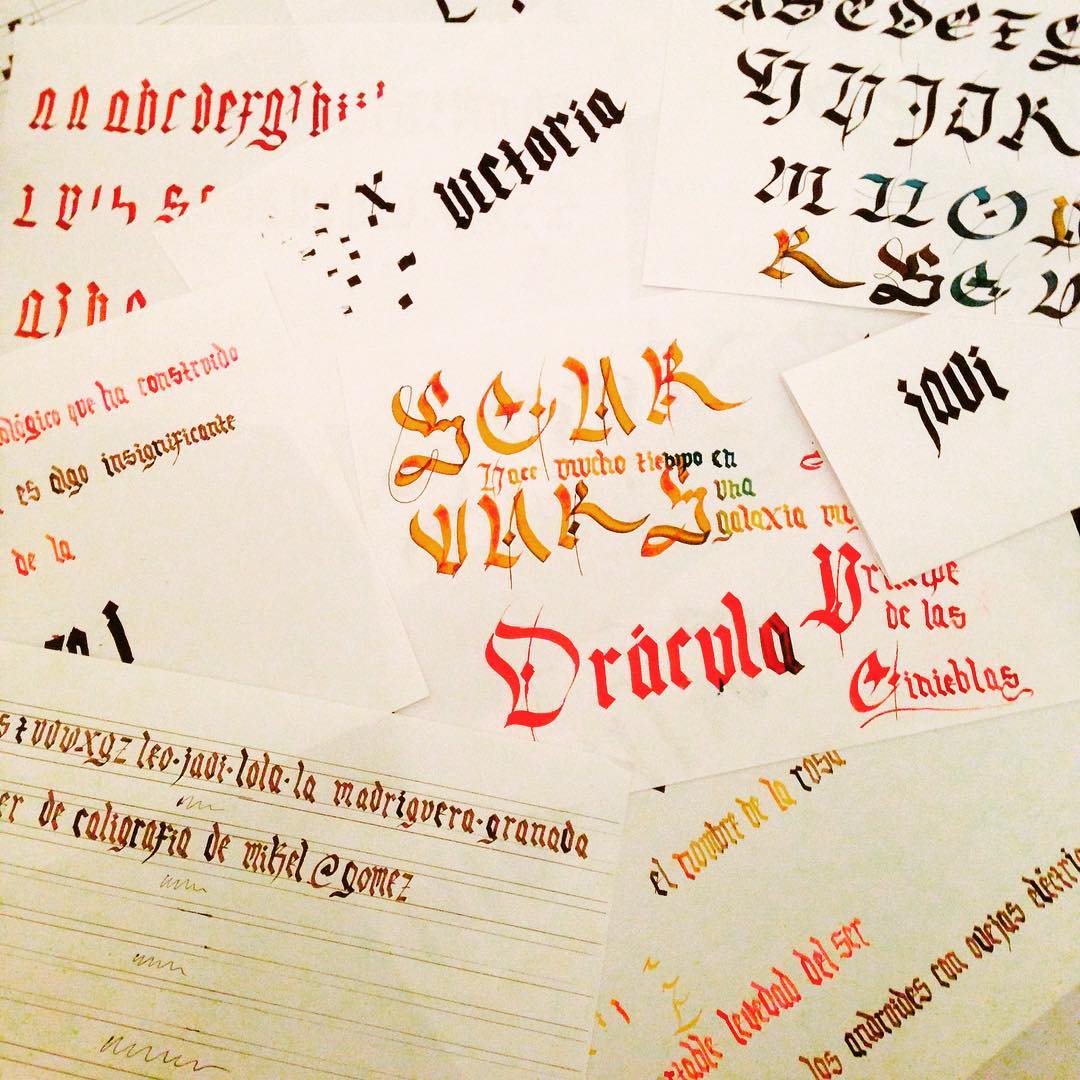 a a abcdefghi
victoria
x
ABCDEFG
HIJK
M N O
R S
javi
ológico que ha construido
es algo insignificante
de la
STAR
Hace mucho tiempo en
una
WARS
galaxia muy
Drácula
Príncipe
de las
Tinieblas
s t u v w x y z leo·javi·lola·la madriguera·granada
er de caligrafia de mikel@gomez
el nombre de la rosa
table levedad del ser
los androides con ovejas eléctric